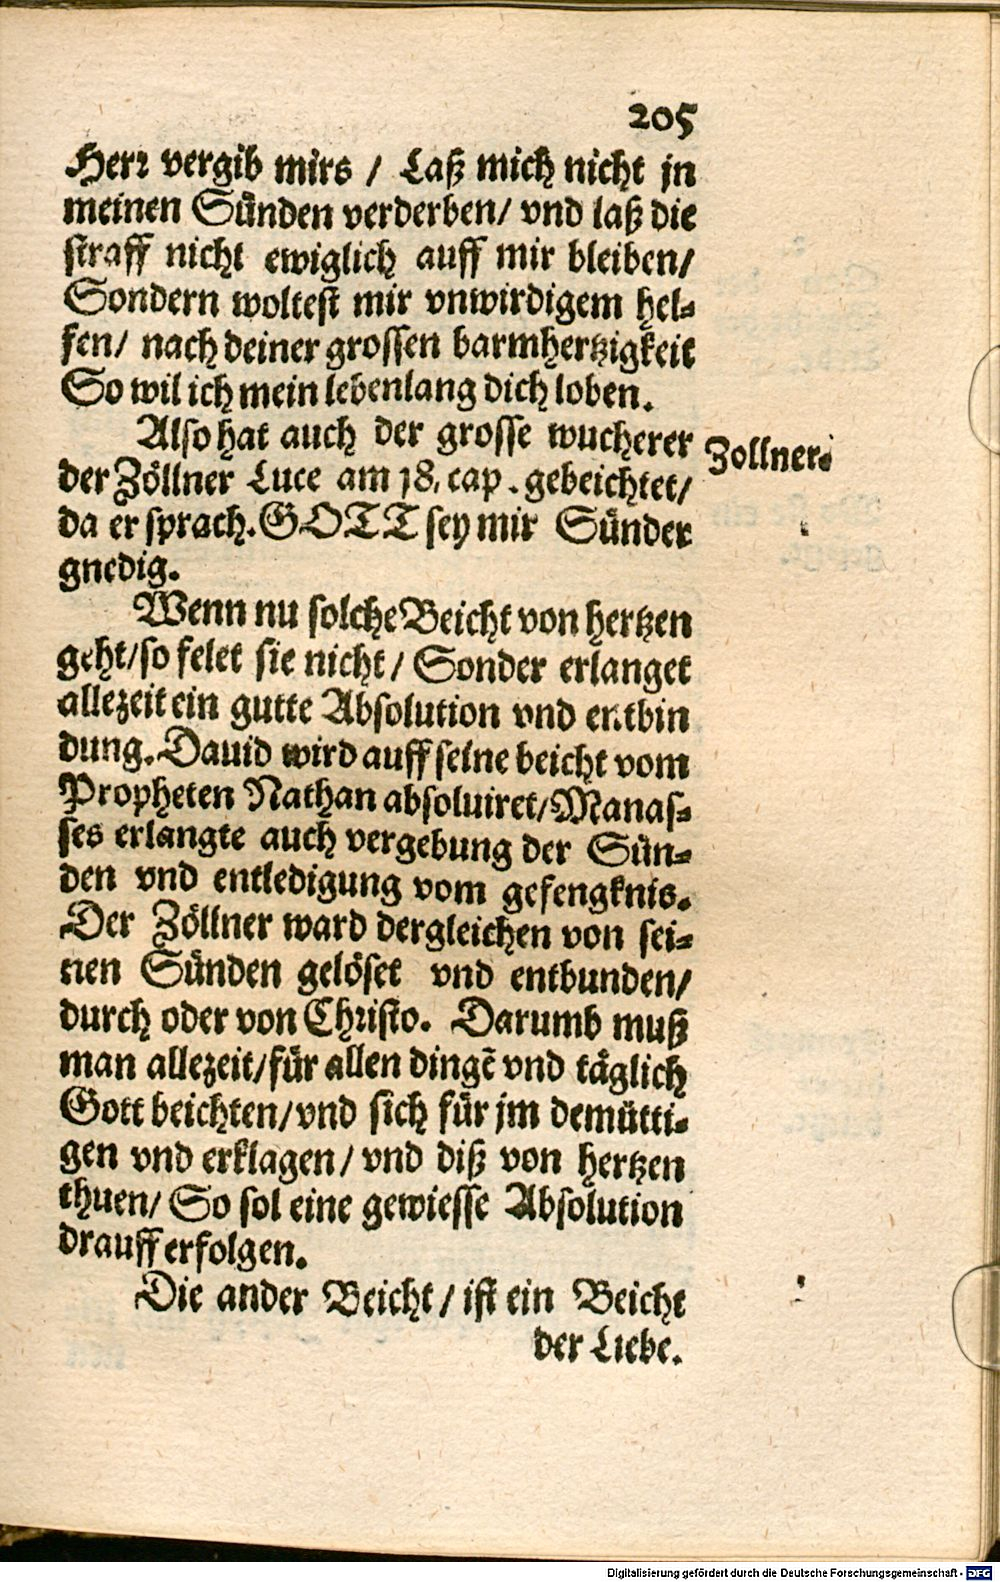 205
Herr vergib mirs / Laß mich nicht jn
meinen Sünden verderben/ vnd laß die
straff nicht ewiglich auff mir bleiben/
Sondern woltest mir vnwirdigem hel-
fen/ nach deiner grossen barmhertzigkeit
So wil ich mein lebenlang dich loben.
Also hat auch der grosse wucherer
Zollner.
der Zöllner Luce am 18. cap. gebeichtet/
da er sprach. GOTT sey mir Sünder
gnedig.
Wenn nu solche Beicht von hertzen
geht/ so felet sie nicht/ Sonder erlanget
allezeit ein gutte Absolution vnd entbin
dung. Dauid wird auff seine beicht vom
Propheten Nathan absoluiret/ Manas-
ses erlangte auch vergebung der Sün-
den vnd entledigung vom gefengknis.
Der Zöllner ward dergleichen von sei-
nen Sünden gelöset vnd entbunden/
durch oder von Christo. Darumb muß
man allezeit/ für allen dingē vnd täglich
Gott beichten/ vnd sich für jm demütti-
gen vnd erklagen/ vnd diß von hertzen
thuen/ So sol eine gewiesse Absolution
drauff erfolgen.
Die ander Beicht/ ist ein Beicht
der Liebe.
Digitalisierung gefördert durch die Deutsche Forschungsgemeinschaft - DFG